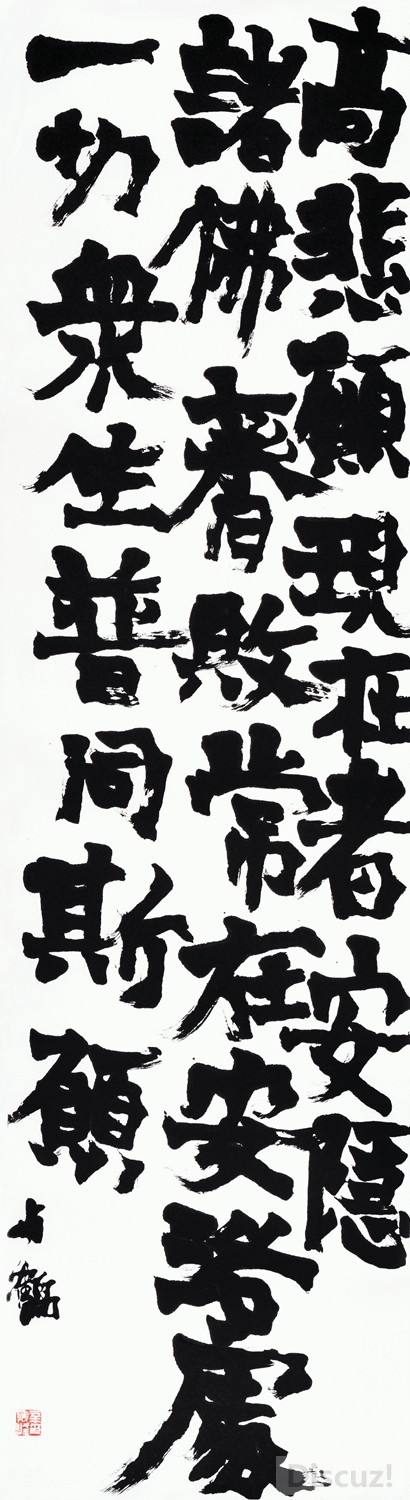 高悲願現在者安隱
諸佛敗常在安處
一切衆生普同斯願
鶴
Discuz!